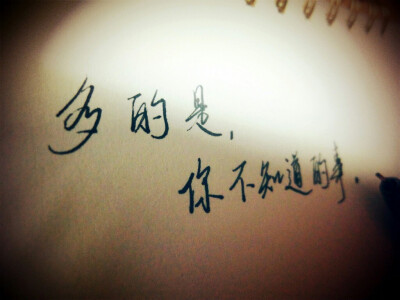 多的是，
你不知道的事．